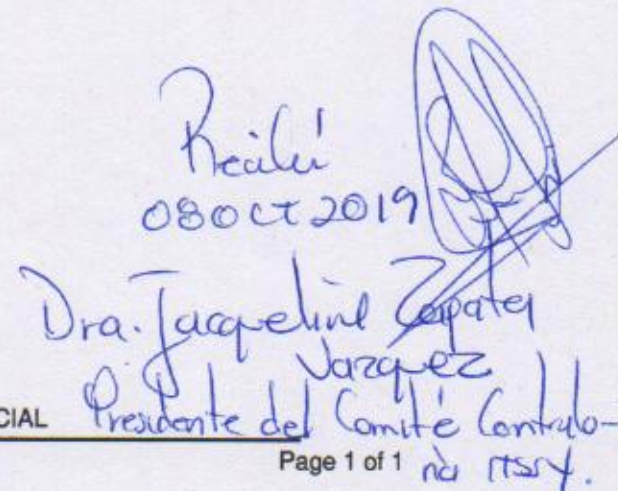 Recibí
08 OCT 2019
Dra. Jacqueline Zapata
Vazquez
CIAL Presidente del Comité Contralo-
Page 1 of 1 ría